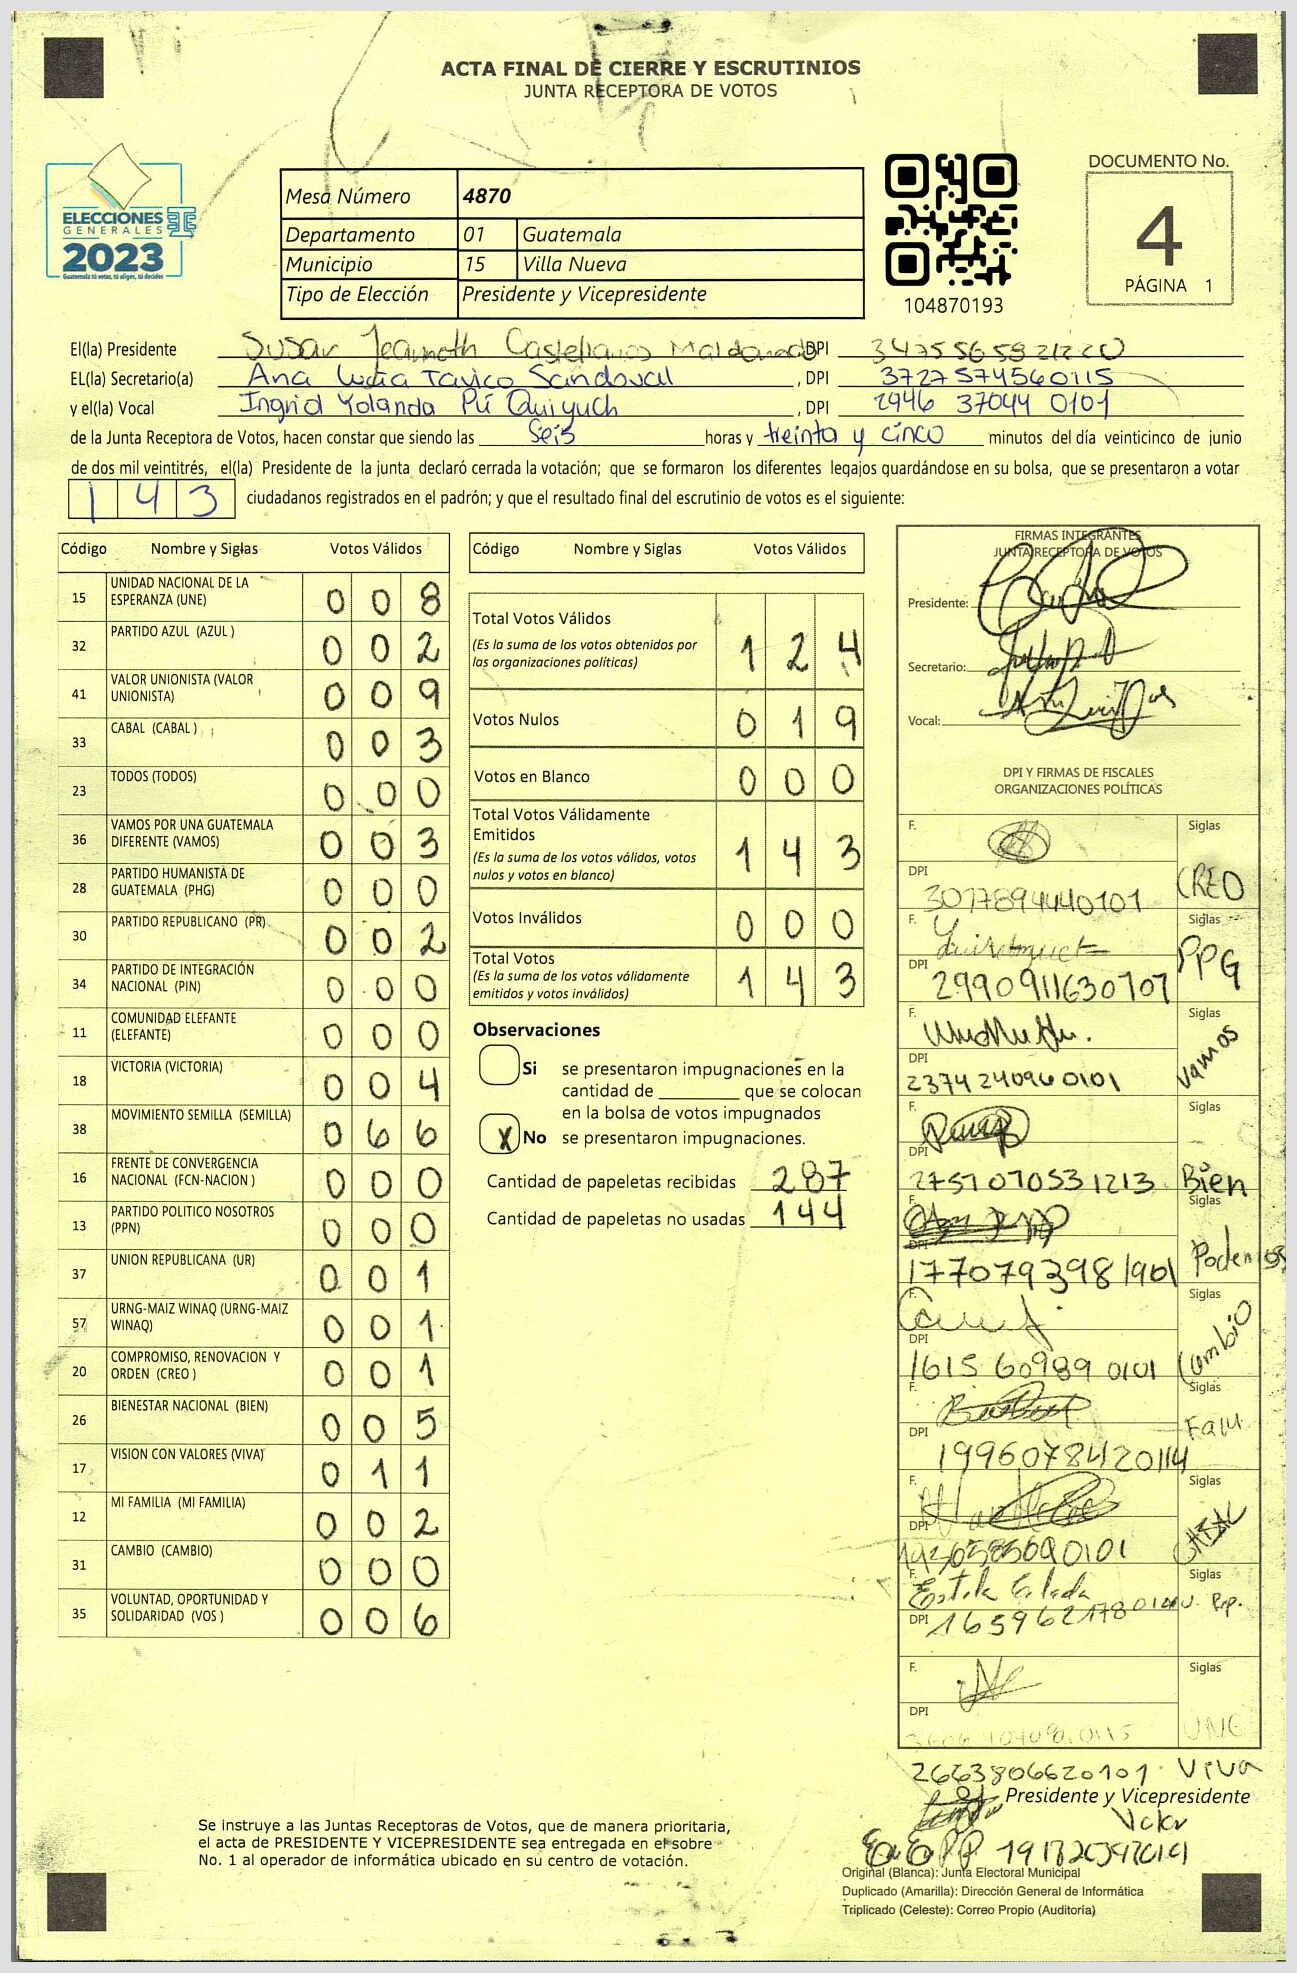 ACTA FINAL DE CIERRE Y ESCRUTINIOS
JUNTA RECEPTORA DE VOTOS
ELECCIONES
GENERALES
2023
Guatemala tú votas, tú eliges, tú decides
Mesa Número 4870
Departamento 01 Guatemala
Municipio 15 Villa Nueva
Tipo de Elección Presidente y Vicepresidente
104870193
DOCUMENTO No.
4
PÁGINA 1
El(la) Presidente Susan Jeanneth Castellanos Maldonado DPI
EL(la) Secretario(a) Ana Lucia Tavico Sandoval, DPI 3727574560115
y el(la) Vocal Ingrid Yolanda Pú Quiyuch, DPI 2946 37044 0101
de la Junta Receptora de Votos, hacen constar que siendo las Seis horas y treinta y cinco minutos del día veinticinco de junio
de dos mil veintitrés, el(la) Presidente de la junta declaró cerrada la votación; que se formaron los diferentes legajos guardándose en su bolsa, que se presentaron a votar
143 ciudadanos registrados en el padrón; y que el resultado final del escrutinio de votos es el siguiente:
Código Nombre y Siglas Votos Válidos
15 UNIDAD NACIONAL DE LA ESPERANZA (UNE) 0 0 8
32 PARTIDO AZUL (AZUL ) 0 0 2
41 VALOR UNIONISTA (VALOR UNIONISTA) 0 0 9
33 CABAL (CABAL ) 0 0 3
23 TODOS (TODOS) 0 0 0
36 VAMOS POR UNA GUATEMALA DIFERENTE (VAMOS) 0 0 3
28 PARTIDO HUMANISTA DE GUATEMALA (PHG) 0 0 0
30 PARTIDO REPUBLICANO (PR) 0 0 2
34 PARTIDO DE INTEGRACIÓN NACIONAL (PIN) 0 0 0
11 COMUNIDAD ELEFANTE (ELEFANTE) 0 0 0
18 VICTORIA (VICTORIA) 0 0 4
38 MOVIMIENTO SEMILLA (SEMILLA) 0 6 6
16 FRENTE DE CONVERGENCIA NACIONAL (FCN-NACION ) 0 0 0
13 PARTIDO POLITICO NOSOTROS (PPN) 0 0 0
37 UNION REPUBLICANA (UR) 0 0 1
57 URNG-MAIZ WINAQ (URNG-MAIZ WINAQ) 0 0 1
20 COMPROMISO, RENOVACION Y ORDEN (CREO ) 0 0 1
26 BIENESTAR NACIONAL (BIEN) 0 0 5
17 VISION CON VALORES (VIVA) 0 1 1
12 MI FAMILIA (MI FAMILIA) 0 0 2
31 CAMBIO (CAMBIO) 0 0 0
35 VOLUNTAD, OPORTUNIDAD Y SOLIDARIDAD (VOS ) 0 0 6
Código Nombre y Siglas Votos Válidos
Total Votos Válidos 1 2 4
(Es la suma de los votos obtenidos por
las organizaciones políticas)
Votos Nulos 0 1 9
Votos en Blanco 0 0 0
Total Votos Válidamente
Emitidos 1 4 3
(Es la suma de los votos válidos, votos
nulos y votos en blanco)
Votos Inválidos 0 0 0
Total Votos 1 4 3
(Es la suma de los votos válidamente
emitidos y votos inválidos)
Observaciones
Si se presentaron impugnaciones en la
cantidad de ________ que se colocan
en la bolsa de votos impugnados
X No se presentaron impugnaciones.
Cantidad de papeletas recibidas 287
Cantidad de papeletas no usadas 144
FIRMAS INTEGRANTES
JUNTA RECEPTORA DE VOTOS
Presidente:
Secretario:
Vocal:
DPI Y FIRMAS DE FISCALES
ORGANIZACIONES POLÍTICAS
F. Siglas
DPI 3017894440101 CREO
F. Siglas
DPI 2990911630707 PPG
F. Siglas
DPI 2374 24096 0101 Vamos
F. Siglas
DPI 2757070531213 Bien
F. Siglas
DPI 1770793981901 Podemos
F. Siglas
DPI 1615 60989 0101 Cambio
F. Siglas
DPI 1996078420114 Fam.
F. Siglas
DPI
F. Estela Siglas
DPI
F. Siglas
DPI UNE
2663806620101 VIVA
Presidente y Vicepresidente
Valor
Se instruye a las Juntas Receptoras de Votos, que de manera prioritaria,
el acta de PRESIDENTE Y VICEPRESIDENTE sea entregada en el sobre
No. 1 al operador de informática ubicado en su centro de votación.
Original (Blanca): Junta Electoral Municipal
Duplicado (Amarilla): Dirección General de Informática
Triplicado (Celeste): Correo Propio (Auditoría)